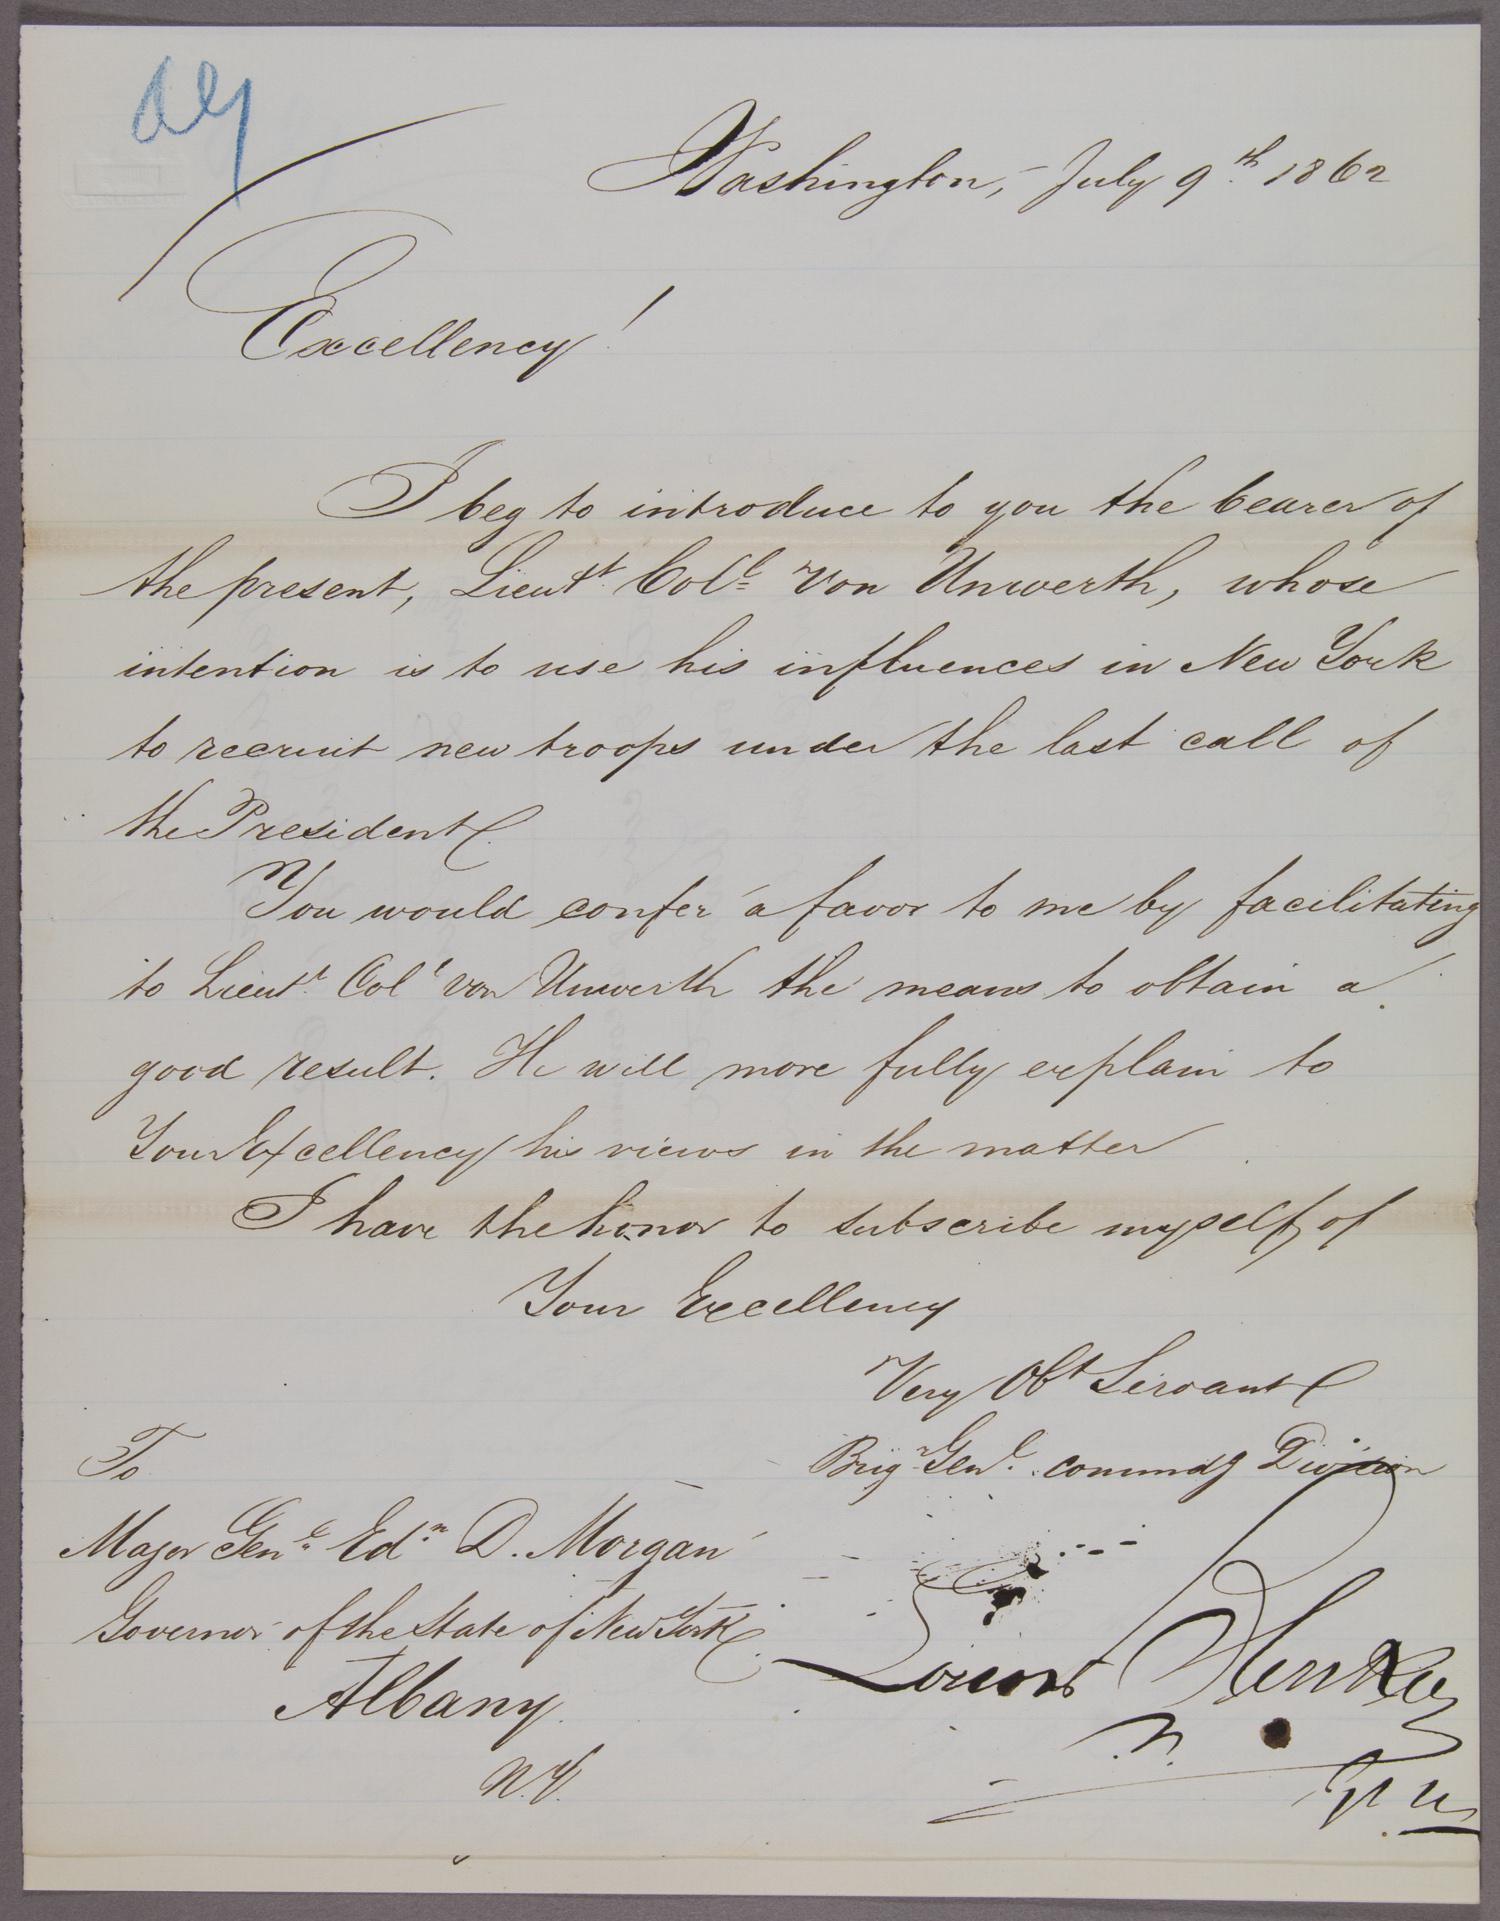 Washington, July 9th 1862
Excellency!
I beg to introduce to you the bearer of
the present, Lieut Coll von Unwerth, whose
intention is to use his influences in New York
to recruit new troops under the last call of
the President.
You would confer a favor to me by facilitating
to Lieut. Col von Unwerth the means to obtain a
good result. He will more fully explain to
Your Excellency his views in the matter
I have the honor to subscribe myself, of
Your Excellency
Very Obt Servant
Brigr Genl. commdg Division
To
Major Genl Edn D. Morgan
Governor of the State of New York.
Louis
Albany.
N.Y.